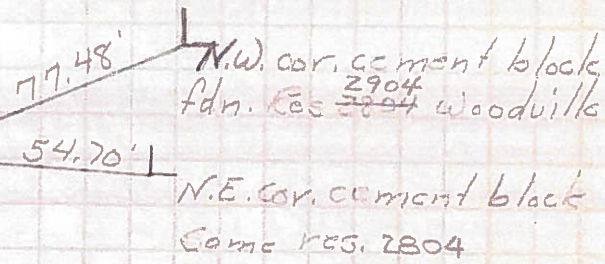 77.48' N.W. cor. cement block
2904
fdn. Res 2804 Woodville
54.70'
N.E. cor. cement block
Same res. 2804